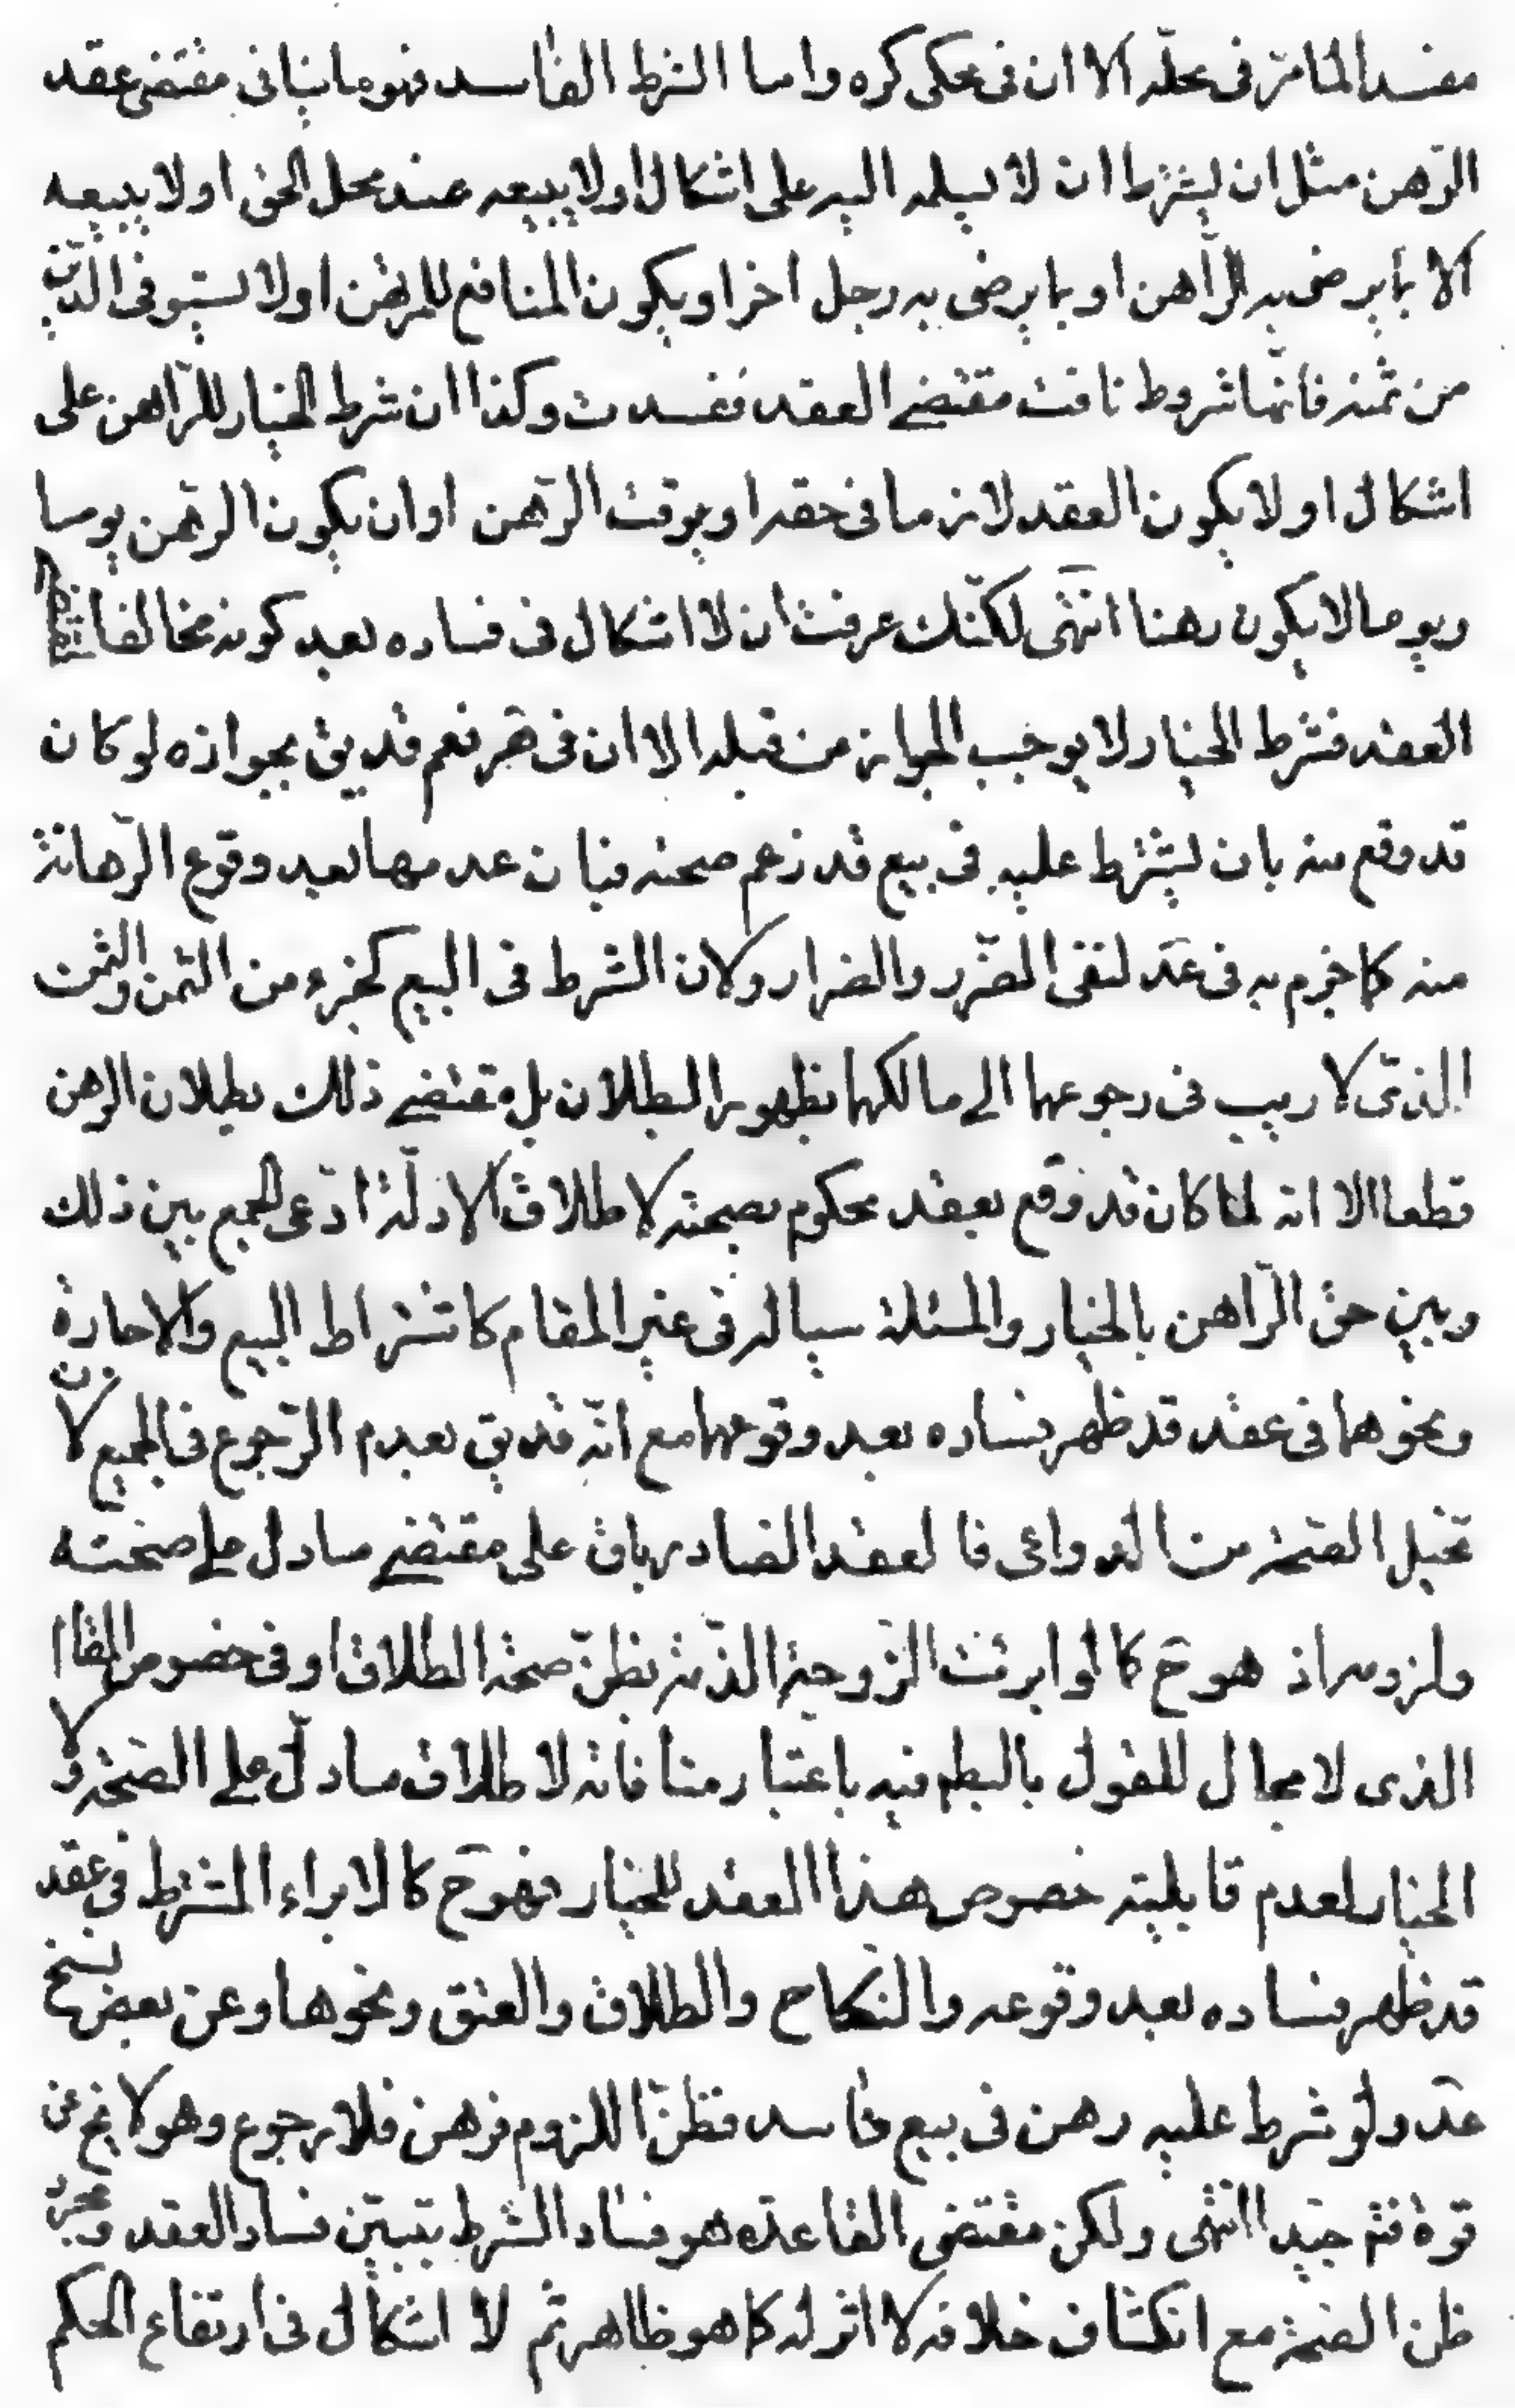 مفسد لما مرّ في محلّه الا ان في محكى كره واما الشرط الفاسد فهو ما ينافى مقتضى عقد
الرّهن مثل ان يشترط ان لا يسلمه اليه على اشكال او لا يبيعه عند محل الحق او لا يبيعه
الا بما يرضى به الرّاهن او بما يرضى به رجل اخر او يكون المنافع للمرتهن او لا يستوفى الدّين
من ثمنه فانّها شروط نافت مقتضى العقد ففسدت وكذا ان شرط الخيار للرّاهن على
اشكال او لا يكون العقد لازما فى حقه او يوقت الرّهن او ان يكون الرهن يوما
ويوما لا يكون رهنا انتهى لكنّك عرفت ان لا اشكال فى فساده بعد كونه مخالفا لمقتضى
العقد فشرط الخيار لا يوجب الجواز من قبله الا ان فى هر نعم قد يق بجوازه لو كان
قد وقع منه بان يشترط عليه فى بيع قد زعم صحته فبان عدمها بعد وقوع الرّهانة
منه كما جزم به فى عد لنفى الضّرر والضرار ولان الشرط فى البيع كجزء من الثمن والثمن
الذى لا ريب فى رجوعها الى مالكها بظهور البطلان بل مقتضى ذلك بطلان الرهن
قطعا الا انه لما كان قد وقع بعقد محكوم بصحته لاطلاق الادلّة ادّعى الجمع بين ذلك
وبين حق الرّاهن بالخيار والمسئلة سيالة فى غير المقام كاشتراط البيع والاجارة
ونحوهما فى عقد قد ظهر فساده بعد وقوعهما مع انّه قد يق بعدم الرّجوع فى الجميع لان
تخيل الصّحة من الدواعى فالعقد الصادر باق على مقتضى ما دل على صحته
ولزومه اذ هو ح كما لو ابرئت الزوجة الذّمة بظنّ صحة الطلاق او فى خصوص المقام
الذى لا مجال للقول بالبطلم فيه باعتبار منافاته لاطلاق ما دلّ على الصّحة ولا
الخيار لعدم قابلية خصوص هذا العقد للخيار فهو ح كالابراء المشترط فى عقد
قد ظهر فساده بعد وقوعه والنكاح والطلاق والعتق ونحوها وعن بعض نسخ
عد ولو شرط عليه رهن فى بيع فاسد فظنّ اللزوم فرهن فلا رجوع وهو لا يخ عن
قوة فتم جيّدا انتهى ولكن مقتضى القاعدة هو فساد الشرط بتبيّن فساد العقد ومجرد
ظن الصّحة مع انكشاف خلافه لا اثر له كما هو ظاهر ثم لا اشكال فى ارتفاع الحكم